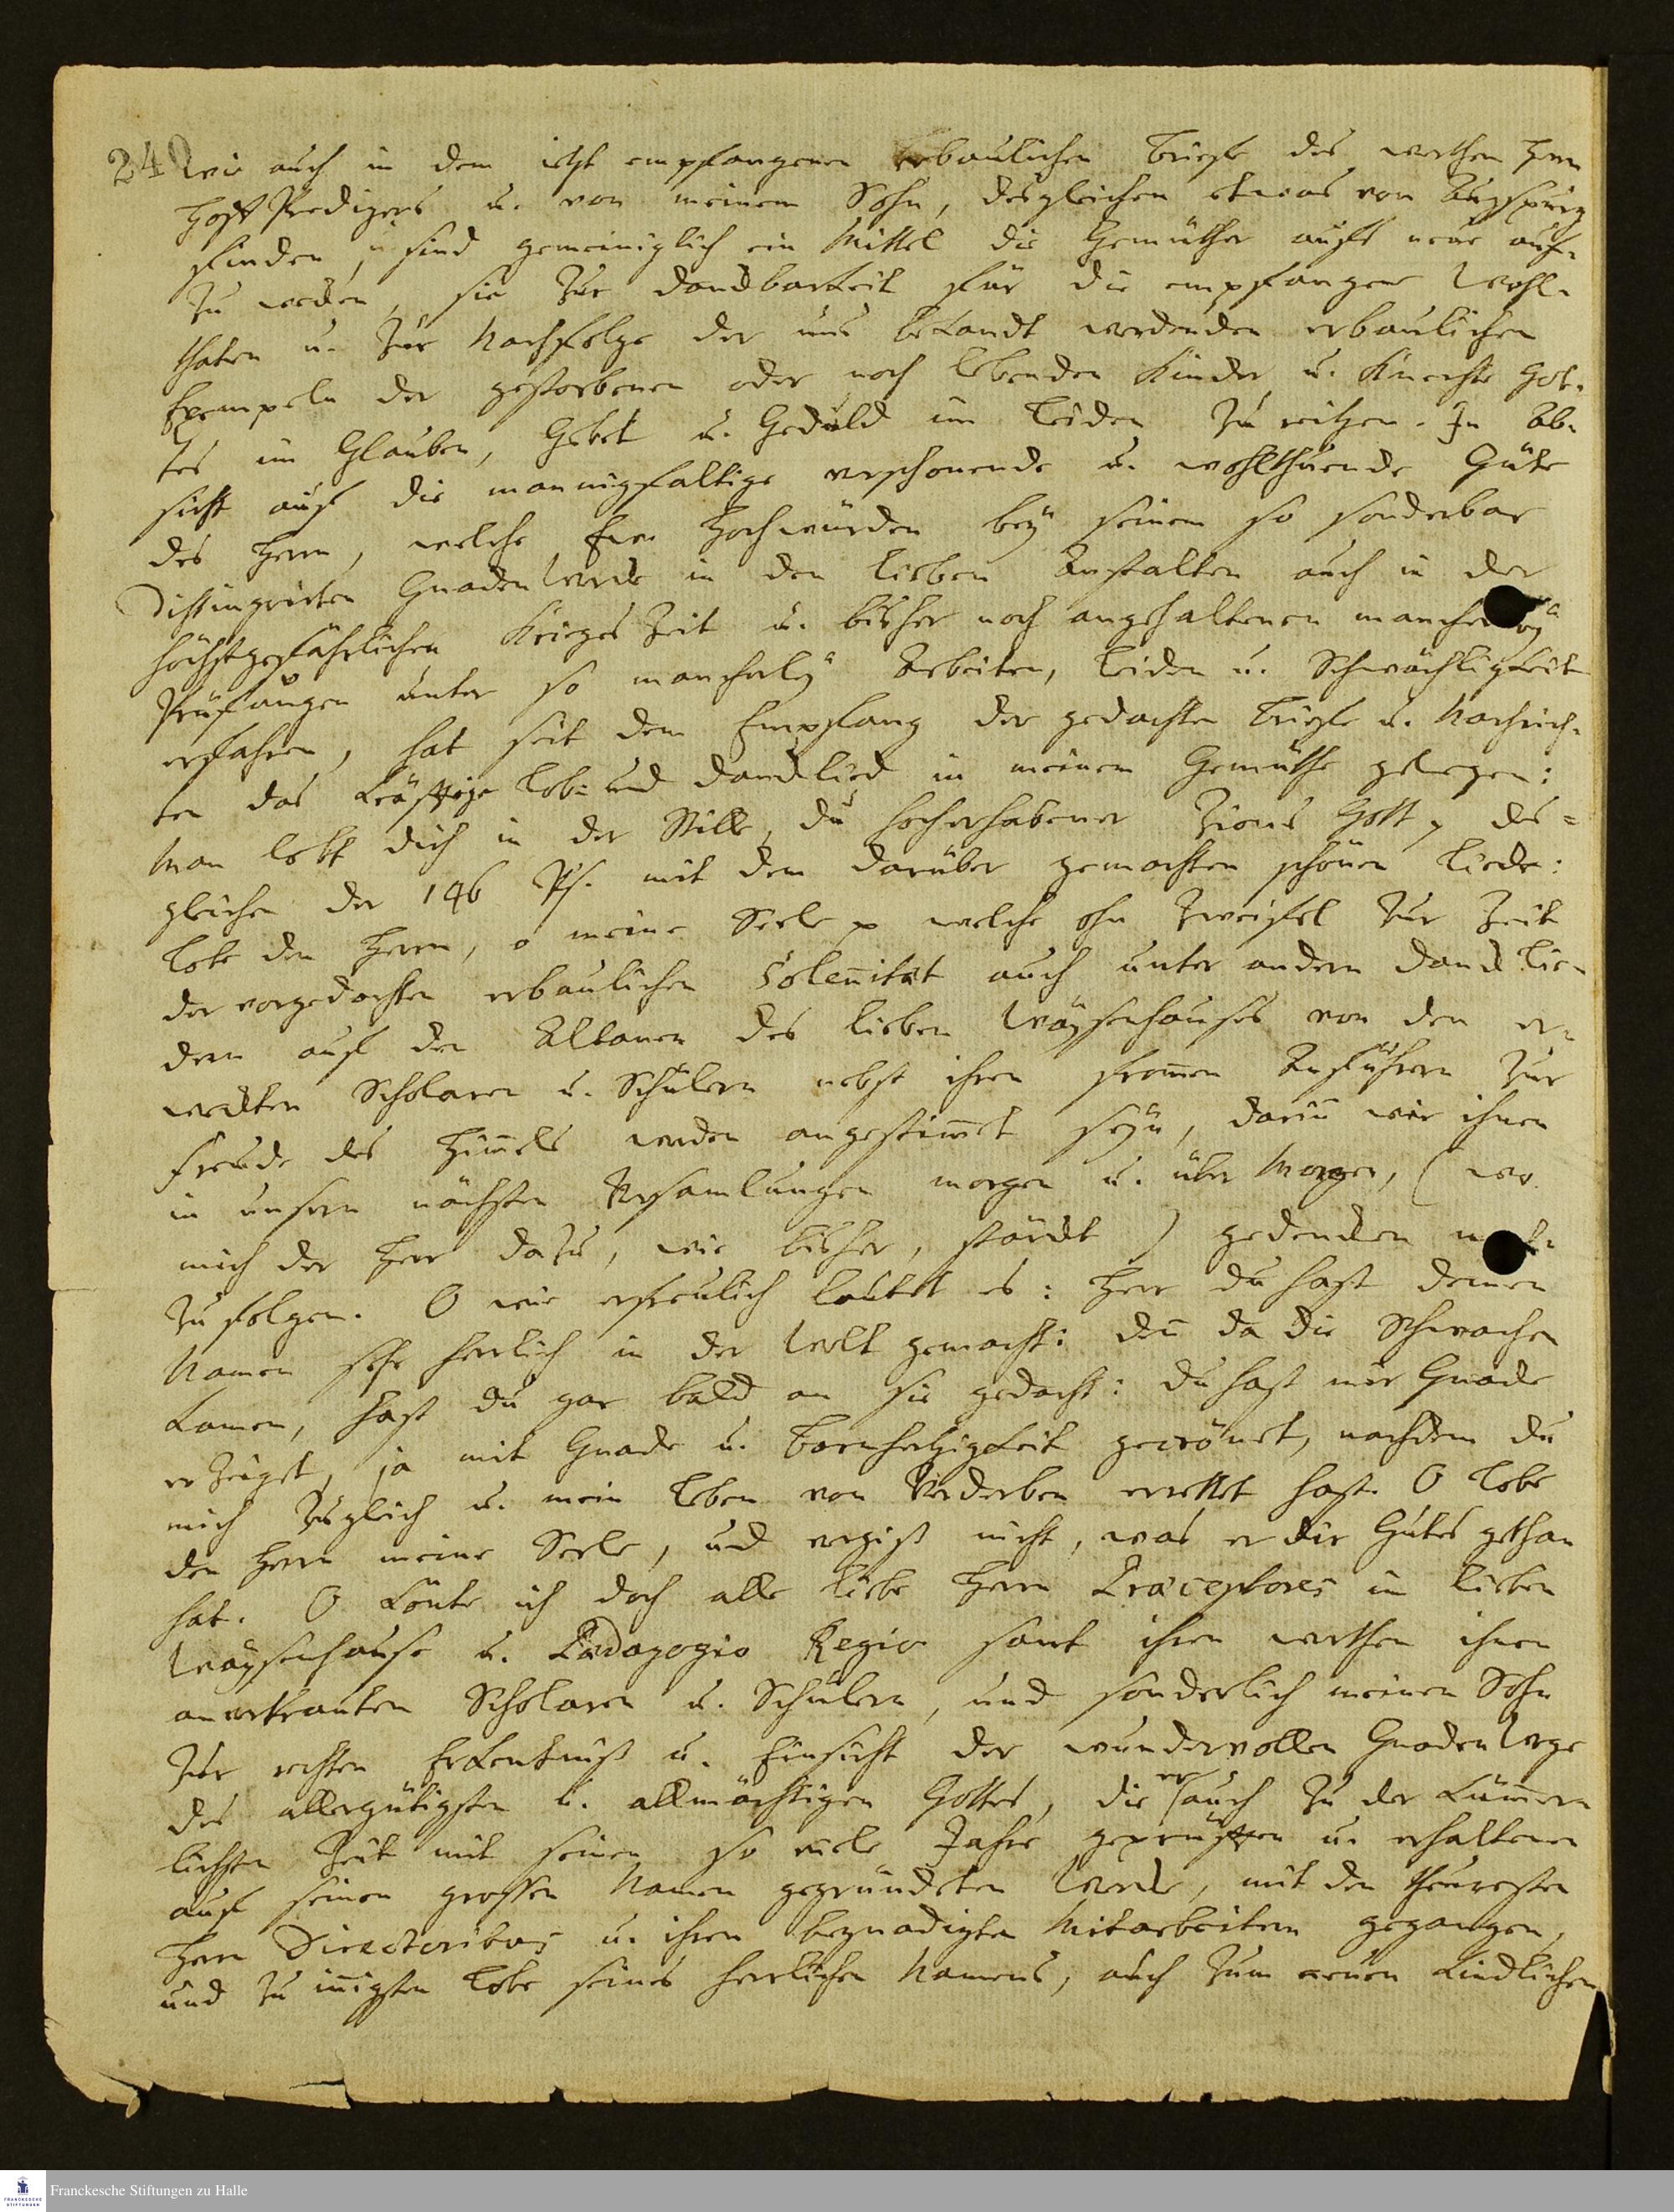 240
Wie auch in dem ietzt empfangenen erbaulichen Briefe des werthen Herrn
Hoff Predigers u. von meinem Sohn, desgleichen etwas von Augspurg
finden, sind gemeiniglich ein Mittel die Gemüther aufs neue auf-
zu wecken, sie zur Danckbarkeit für die empfangene Wohl-
thaten u. zur Nachfolge der uns bekandt werdenden erbaulichen
Exempeln der gestorbenen oder noch lebenden Kinder u. Knechte Got-
tes im Glauben, Gebet u. Geduld im Leiden zu reitzen. In Ab-
sicht auf die mannigfaltige verschonende u. wohlthuende Güte
des Herrn, welche Ew. Hochwürden bey seinem so sonderbar
distinguirten Gnaden Werck in den lieben Anstalten auch in der
höchstgefährlichen Krieges Zeit u. bisher noch angehaltenen
Prüfungen unter so mancherley Arbeiten, Leiden u. Schwächligkeit
erfahren, hat seit dem Empfang der gedachten Briefe u. Nachrich-
ten das kräftige Lob- und Dancklied in meinem Gemüthe gelegen:
Man lobt dich in der Stille, du hocherhabener Zions Gott, des-
gleichen der 146 Ps. mit dem darüber gemachten schönen Liede:
Lobe den Herrn, o meine Seele welche ohn Zweifel zur Zeit
der vorgedachten erbaulichen Solennitæt auch unter andern Danck Lie-
dern auf den Altanen des lieben Waÿsenhauses von den er-
weckten Scholaren u. Schülern nebst ihren frommen Anführern zur
Freude des Himmels werden angestimmet seyn, darin wir ihnen
in unsern nächsten Versamlungen morgen u. über Morgen, (wo
mich der Herr dazu, wie bisher, stärckt) gedencken
zu folgen. O wie erfreulich lautet es: Herr du hast deinen
Namen sehr herrlich in der Welt gemacht: den da die Schwachen
kamen, hast du gar bald an sie gedacht: du hast mir Gnade
erzeiget, ja mit Gnade u. Barmhertzigkeit gecrönet, nachdem du
mich zugleich u. mein Leben von Verderben errettet hast. O Lobe
den Herrn meine Seele, und vergiß nicht, was er dir Gutes gethan
hat. O könte ich doch alle liebe Herrn Præceptores im lieben
Waÿsenhause u. Pædagogio Regio samt ihren werthen ihnen
anvertrauten Scholaren u. Schülern, und sonderlich meinen Sohn
zur rechten Erkentniß u. Einsicht der wundervollen Gnaden Wege
des allergütigsten u. allmächtigen Gottes, die er auch zu der kümmer-
lichsten Zeit mit seinem so viele Jahre geprüften u. erhaltenen
auf seinen grossen Namen gegründeten Werck, mit den theuresten
Herrn Directoribus u. ihren begnadigten Mitarbeitern gegangen,
und zu innigsten Lobe seines herrlichen Namens, auch zum neuen kindlichen
Franckesche Stiftungen zu Halle